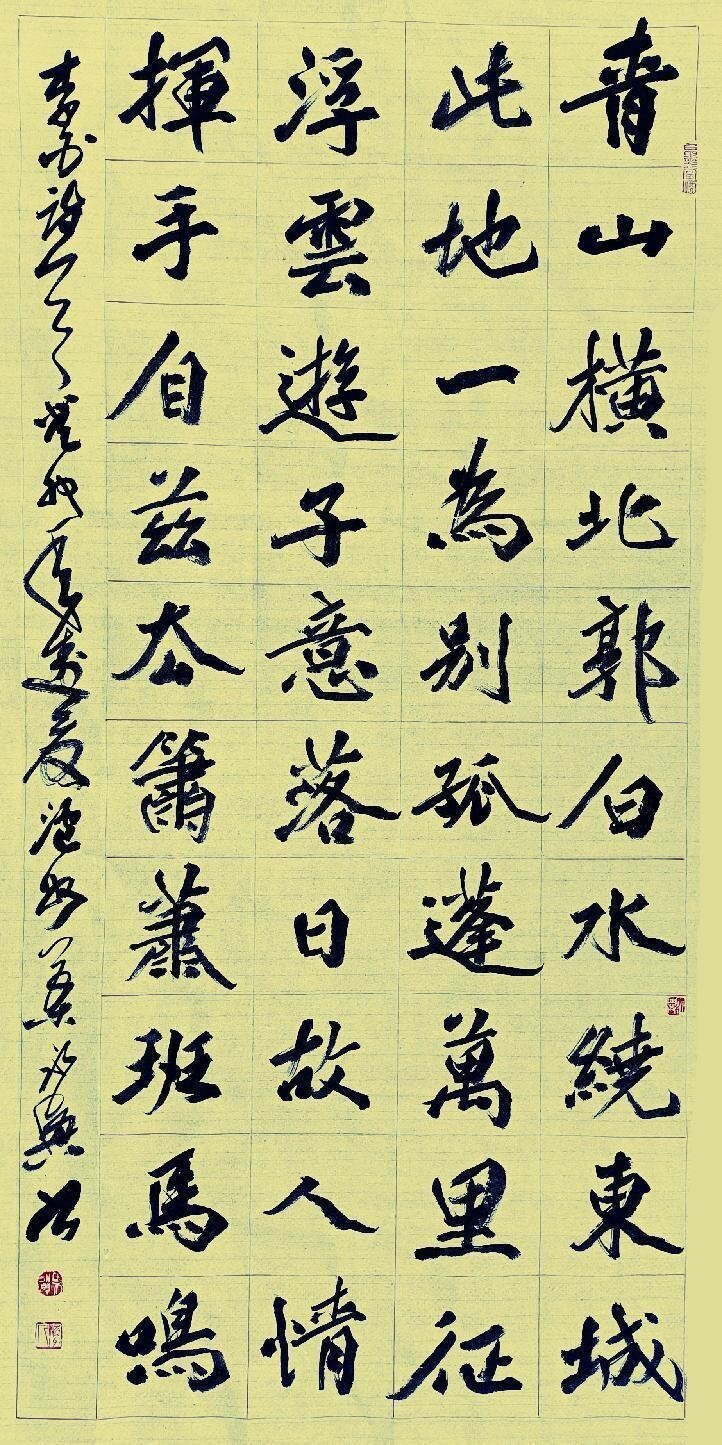 青山橫北郭白水繞東城
此地一為別孤蓬萬里征
浮雲遊子意落日故人情
揮手自茲去簫蕭班馬鳴
李白詩一